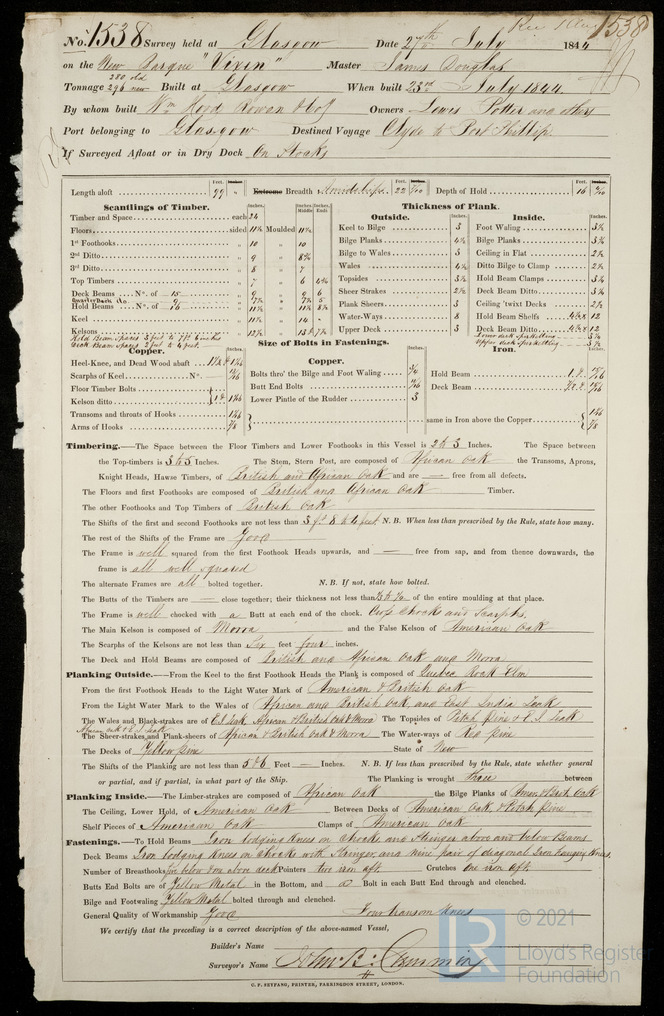 No. 1538 Survey held at Glasgow Date 27th July 1844 1538
on the New Barque "Vixen" Master James Douglas
Tonnage 280 old 296 new Built at Glasgow When built 23rd July 1844.
By whom built Wm Hood Rowan & Co Owners Lewis Potter and others
Port belonging to Glasgow Destined Voyage Clyde to Port Phillip.
If Surveyed Afloat or in Dry Dock On Stocks
Length aloft 99 Extreme Breadth Amidships 22 Depth of Hold 16
Scantlings of Timber. Thickness of Plank.
Outside. Inside.
Timber and Space each 24
Floors sided Moulded
1st Foothooks 10 " 10
2nd Ditto 9
3rd Ditto 8 " 7
Top Timbers
Deck Beams No. of 15 9 " 9 6
Quarter Deck do. No. of 9
Hold Beams
Keel
Kelsons
Hold Beam Spaces 3 feet to 7 ft 6 inches
Deck Beam Spaces 2 feet to 4 feet.
Keel to Bilge 3 Foot Waling
Bilge Planks Bilge Planks
Bilge to Wales 3 Ceiling in Flat
Wales Ditto Bilge to Clamp
Topsides Hold Beam Clamps
Sheer Strakes Deck Beam Ditto
Plank Sheers 3 Ceiling 'twixt Decks
Water-Ways 8 Hold Beam Shelfs 12
Upper Deck 3 Deck Beam Ditto 12
Size of Bolts in Fastenings.
Copper. Copper. Iron.
Heel-Knee, and Dead Wood abaft
Scarphs of Keel No.
Floor Timber Bolts
Kelson ditto
Transoms and throats of Hooks
Arms of Hooks
Bolts thro' the Bilge and Foot Waling
Butt End Bolts
Lower Pintle of the Rudder 3
Hold Beam
Deck Beam
same in Iron above the Copper
Timbering.—The Space between the Floor Timbers and Lower Foothooks in this Vessel is 2 to 3 Inches. The Space between
the Top-timbers is 3 to 5 Inches. The Stem, Stern Post, are composed of African Oak the Transoms, Aprons,
Knight Heads, Hawse Timbers, of British and African Oak and are — free from all defects.
The Floors and first Foothooks are composed of British and African Oak Timber.
The other Foothooks and Top Timbers of British Oak
The Shifts of the first and second Foothooks are not less than 3 ft 8 to 4 feet N. B. When less than prescribed by the Rule, state how many.
The rest of the Shifts of the Frame are Good
The Frame is well squared from the first Foothook Heads upwards, and — free from sap, and from thence downwards, the
frame is all well squared
The alternate Frames are all bolted together. N. B. If not, state how bolted.
The Butts of the Timbers are — close together; their thickness not less than of the entire moulding at that place.
The Frame is well chocked with a Butt at each end of the chock. Cross Chocks and Scarphs.
The Main Kelson is composed of Morra and the False Kelson of American Oak
The Scarphs of the Kelsons are not less than Six feet four inches.
The Deck and Hold Beams are composed of British and African Oak and Morra
Planking Outside.—From the Keel to the first Foothook Heads the Plank is composed of Quebec Rock Elm
From the first Foothook Heads to the Light Water Mark of American & British Oak
From the Light Water Mark to the Wales of African and British Oak, and East India Teak
The Wales and Black-strakes are of E.I. Teak African & British Oak & Morra The Topsides of Pitch Pine & E. I. Teak
African Oak & E. I. Teak
The Sheer-strakes and Plank-sheers of African & British Oak & Morra The Water-ways of Red Pine
The Decks of Yellow Pine State of New
The Shifts of the Planking are not less than 5 to 6 Feet — Inches. N. B. If less than prescribed by the Rule, state whether general
or partial, and if partial, in what part of the Ship. The Planking is wrought Three between
Planking Inside.—The Limber-strakes are composed of African Oak the Bilge Planks of Amern & Brit. Oak
The Ceiling, Lower Hold, of American Oak Between Decks of American Oak, & Pitch Pine
Shelf Pieces of American Oak Clamps of American Oak
Fastenings.—To Hold Beams Iron lodging Knees on Chocks and Stringer above and below Beams
Deck Beams Iron lodging Knees on Chocks with Stringer, and nine pair of diagonal Iron Hanging Knees.
Number of Breasthooks five below two above deck Pointers two iron aft. Crutches One iron aft.
Butts End Bolts are of Yellow Metal in the Bottom, and a Bolt in each Butt End through and clenched.
Bilge and Footwaling Yellow Metal bolted through and clenched.
General Quality of Workmanship Good Four transom Knees
We certify that the preceding is a correct description of the above-named Vessel,
Builder's Name
Surveyor's Name John B. Cumming
C. F. SEYFANG, PRINTER, FARRINGDON STREET, LONDON.
© 2021
Lloyd's Register
Foundation
LR